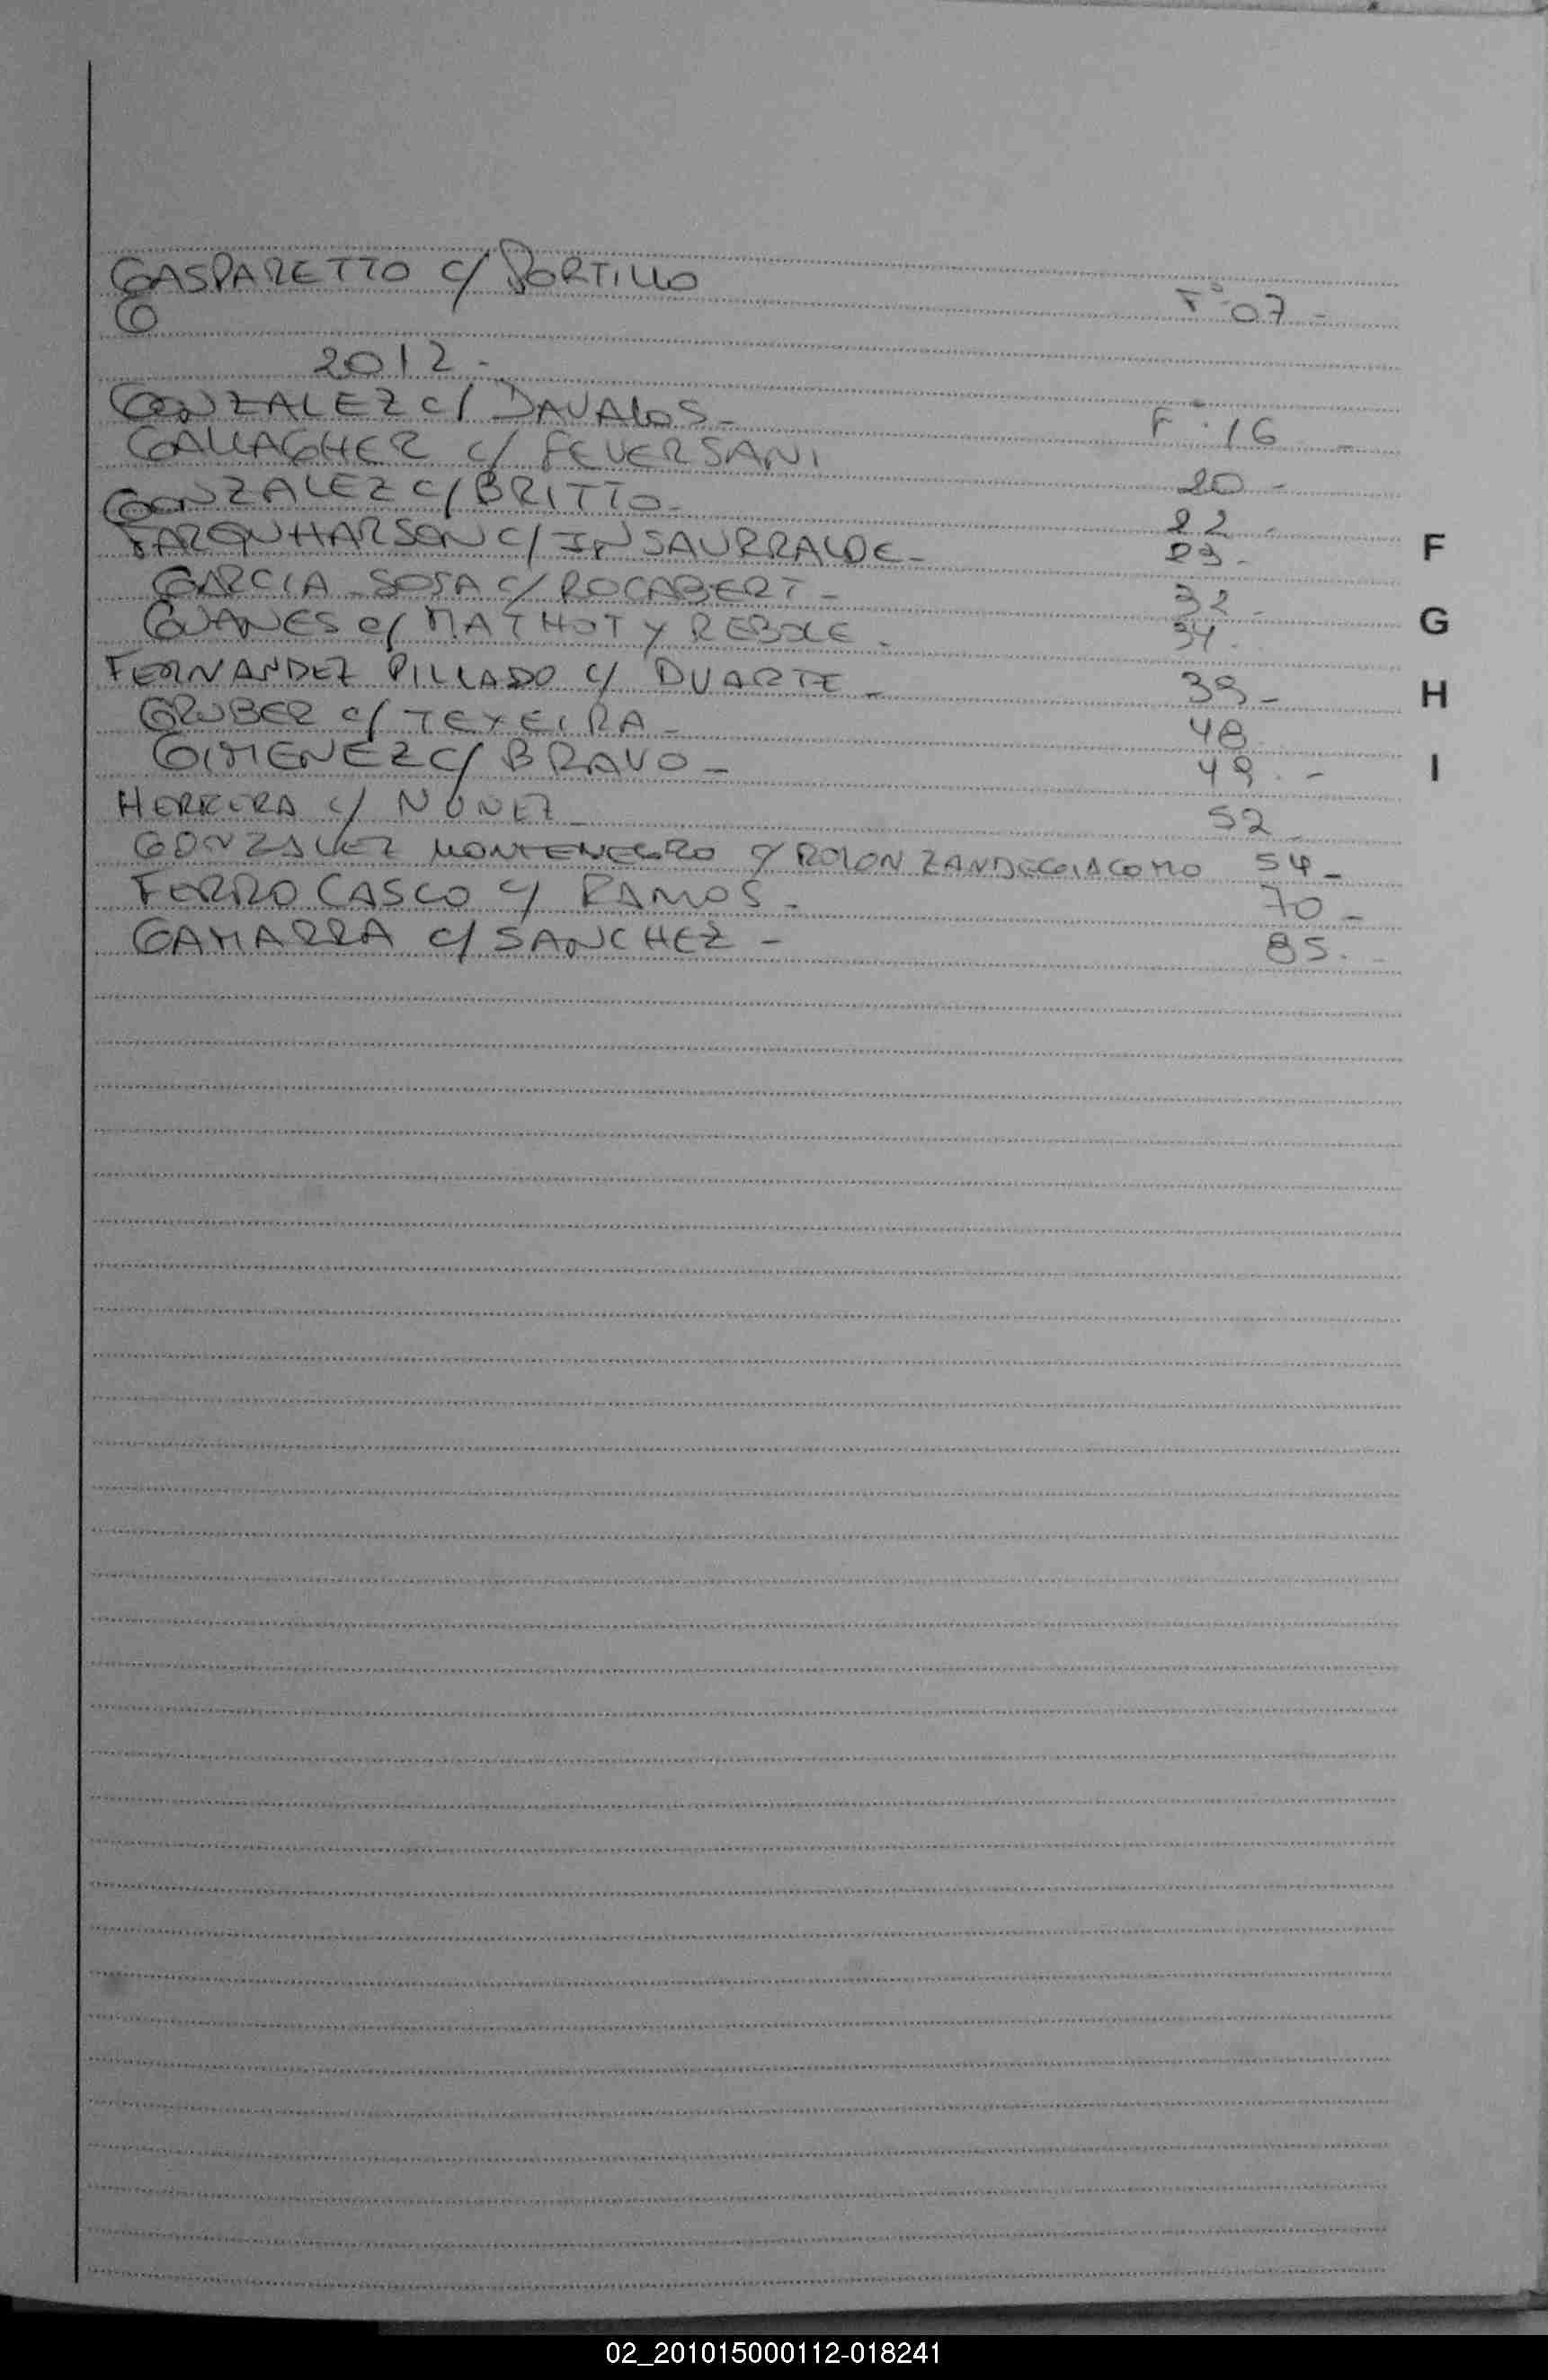 GASPARETTO C/ PORTILLO F° 07 -
G
2012 -
GONZALEZ C/ DAVALOS - F° 16 -
GALLAGHER C/ FEVERSANI 20 -
GONZALEZ C/ BRITTO - 22 -
FARQUHARSON C/ INSAURRALDE - 29 -
GARCIA SOSA C/ ROCABERT - 32 -
GUANES C/ MATHOT Y REBOLE - 34 -
FERNANDEZ PILLADO C/ DUARTE - 39 -
GRUBER C/ TEXEIRA - 48
GIMENEZ C/ BRAVO - 49 -
HERRERA C/ NUÑEZ - 52 -
GONZALEZ MONTENEGRO C/ ROLON ZANDEGIACOMO 54 -
FERRO CASCO C/ RAMOS - 70 -
GAMARRA C/ SANCHEZ - 85 -
F
G
H
I
02_201015000112-018241